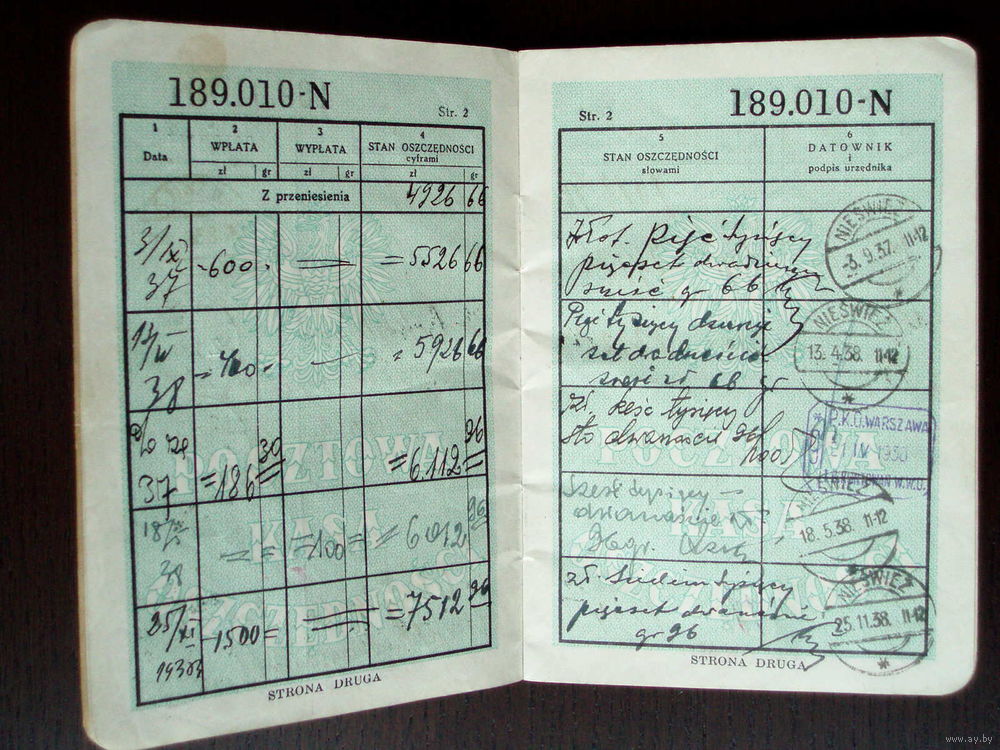 189.010-N
Str. 2
1
Data
2
WPŁATA
zł gr
3
WYPŁATA
zł gr
4
STAN OSZCZĘDNOŚCI
cyframi
zł gr
Z przeniesienia 4926 66
3/IX 37 -600- = 5526 66
38 = 5926 66
37 =186 30 = 6.112 96
38 =100= = 6012 96
25/XI 1938 -1500= =7512 96
POCZTOWA
KASA
OSZCZĘDNOŚCI
STRONA DRUGA
189.010-N
Str. 2
5
STAN OSZCZĘDNOŚCI
słowami
6
DATOWNIK
i
podpis urzędnika
Złot. pięć tysięcy
pięćset dwadzieścia
sześć gr 66
NIEŚWIEŻ
-3. 9.37. 11-12
Pięć tysięcy
66 gr
NIEŚWIEŻ
13. 4.38. 11-12
tysięcy
sto dwanaście
P.K.O. WARSZAWA
Sześć tysięcy
dwanaście zł
96 gr.
18. 5.38. 11-12
zł. Siedem tysięcy
pięćset dwanaście
gr 96
NIEŚWIEŻ
25.11.38. 11-12
POCZTOWA
KASA
OSZCZĘDNOŚCI
STRONA DRUGA
www.ay.by